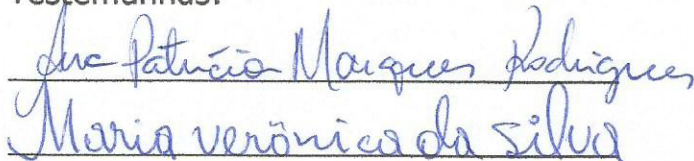 Testemunhas:
Ana Patrícia Marques Rodrigues
Maria verônica da silva